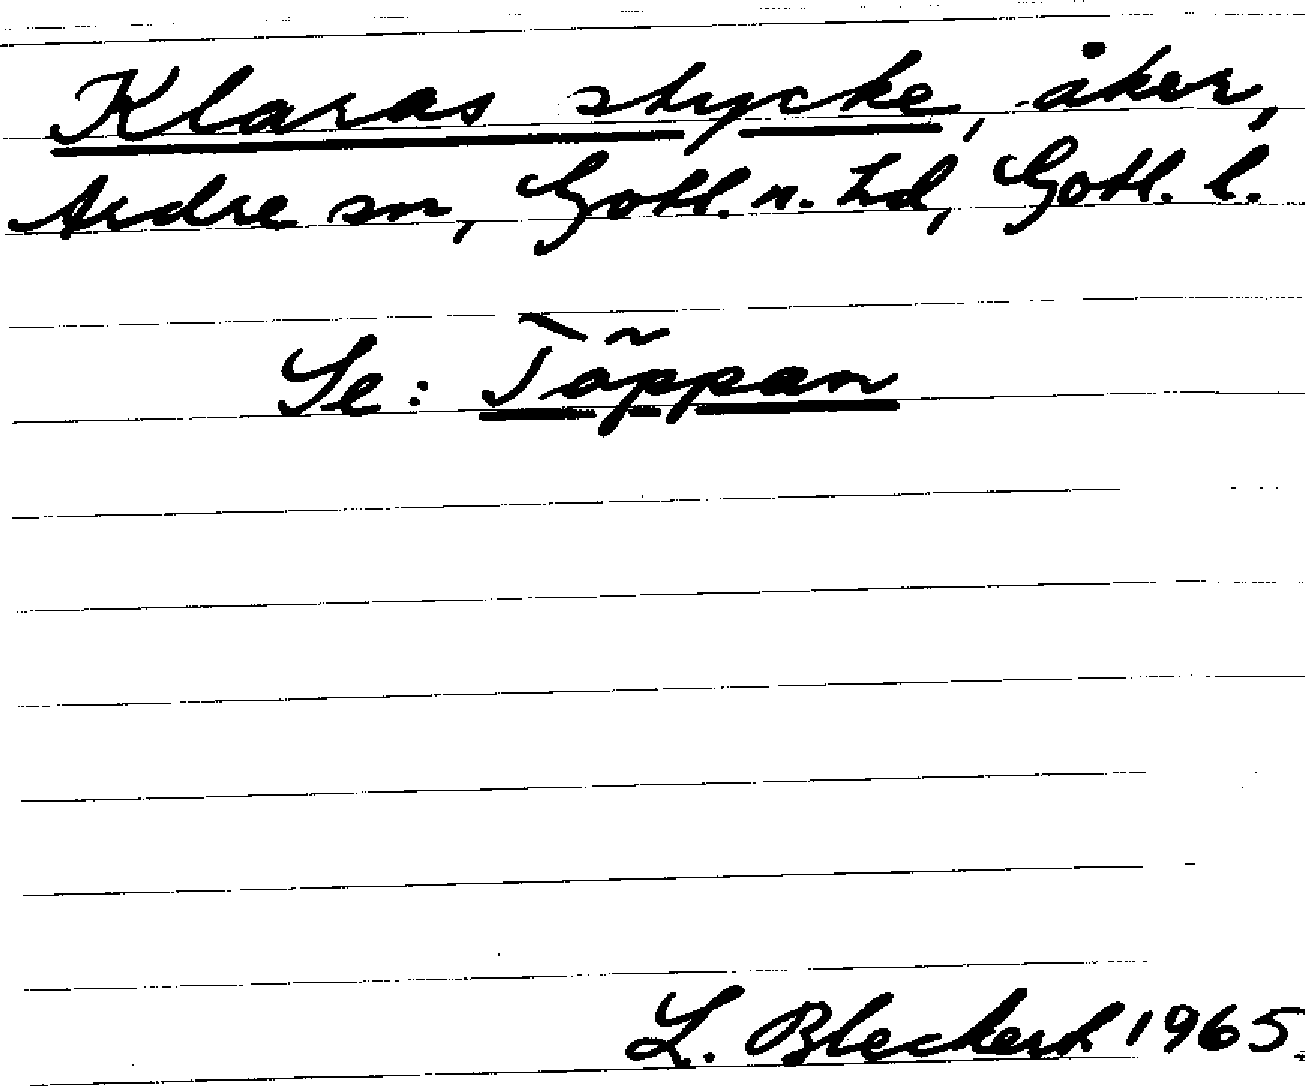 Klaras stycke, åker,
Ardre sn, Gotl. n. hd, Gotl. l.
Se: Täppan
L. Bleckert 1965.